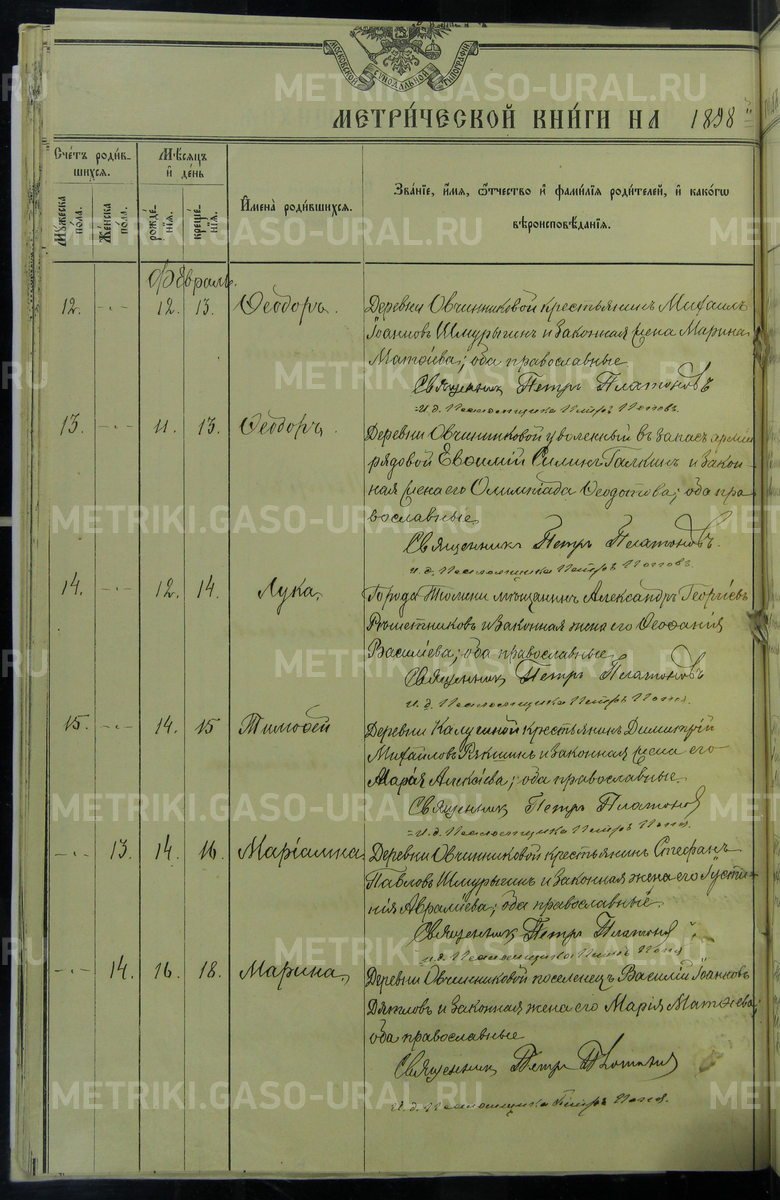 МОСКОВСКОЙ СѴНОДАЛЬНОЙ ТИПОГРАФІИ
МЕТРИ́ЧЕСКОЙ КНИ́ГИ НА 1898
Сче́тъ роди́в-
шихсѧ.
Мѣ́сѧцъ
и҆ де́нь
И҆мена̀ роди́вшихсѧ.
Зва́нїе, и҆́мѧ, ѻ҆́тчество и҆ фами́лїѧ роди́телей, и҆ како́гѡ
вѣроисповѣ́данїѧ.
Мꙋ́жеска по́ла.
Же́нска по́ла.
рожде́-нїѧ.
креще́-нїѧ.
Февраль.
12. -"- 12. 13. Ѳеодоръ. Деревни Овчинниковой крестьянинъ Михаилъ
Іоанновъ Шмурыгинъ и законная жена Марина
Матѳіева; оба православные
Священникъ Петръ Платоновъ
и. д. Псаломщика Петръ Поповъ.
13. -"- 11. 13. Ѳеодоръ. Деревни Овчинниковой уволенный въ запасъ арміи
рядовой Евѳимій Силинъ Галкинъ и закон-
ная жена его Олимпіада Ѳеодотова; оба пра-
вославные
Священникъ Петръ Платоновъ.
и. д. Псаломщика Петръ Поповъ.
14. -"- 12. 14. Лука. Города Тюмени мѣщанинъ Александръ Георгіевъ
Рѣшетниковъ и законная жена его Ѳеофанія
Василіева; оба православные
Священникъ Петръ Платоновъ
и. д. Псаломщика Петръ Поп.
15. -"- 14. 15 Тимоѳей Деревни крестьянинъ Димитрій
Михайловъ и законная жена его
Марія Алексіева; оба православные.
Священникъ Петръ Платонов
и. д. Псаломщика Петръ Попов.
-"- 13. 14. 16. Маріамна. Деревни Овчинниковой крестьянинъ Стефанъ
Павловъ Шмурыгинъ и законная жена его Іусти-
нія; оба православные.
Священникъ Петръ Платонов
и. д. Псаломщика Петръ Попов
-"- 14. 16. 18. Марина. Деревни Овчинниковой поселенецъ Василій Іоанновъ
Дятловъ и законная жена его Марія Матѳіева;
оба православные
Священникъ Петръ Платонов
И. д. Псаломщика Петръ Попов.
METRIKI.GASO-URAL.RU